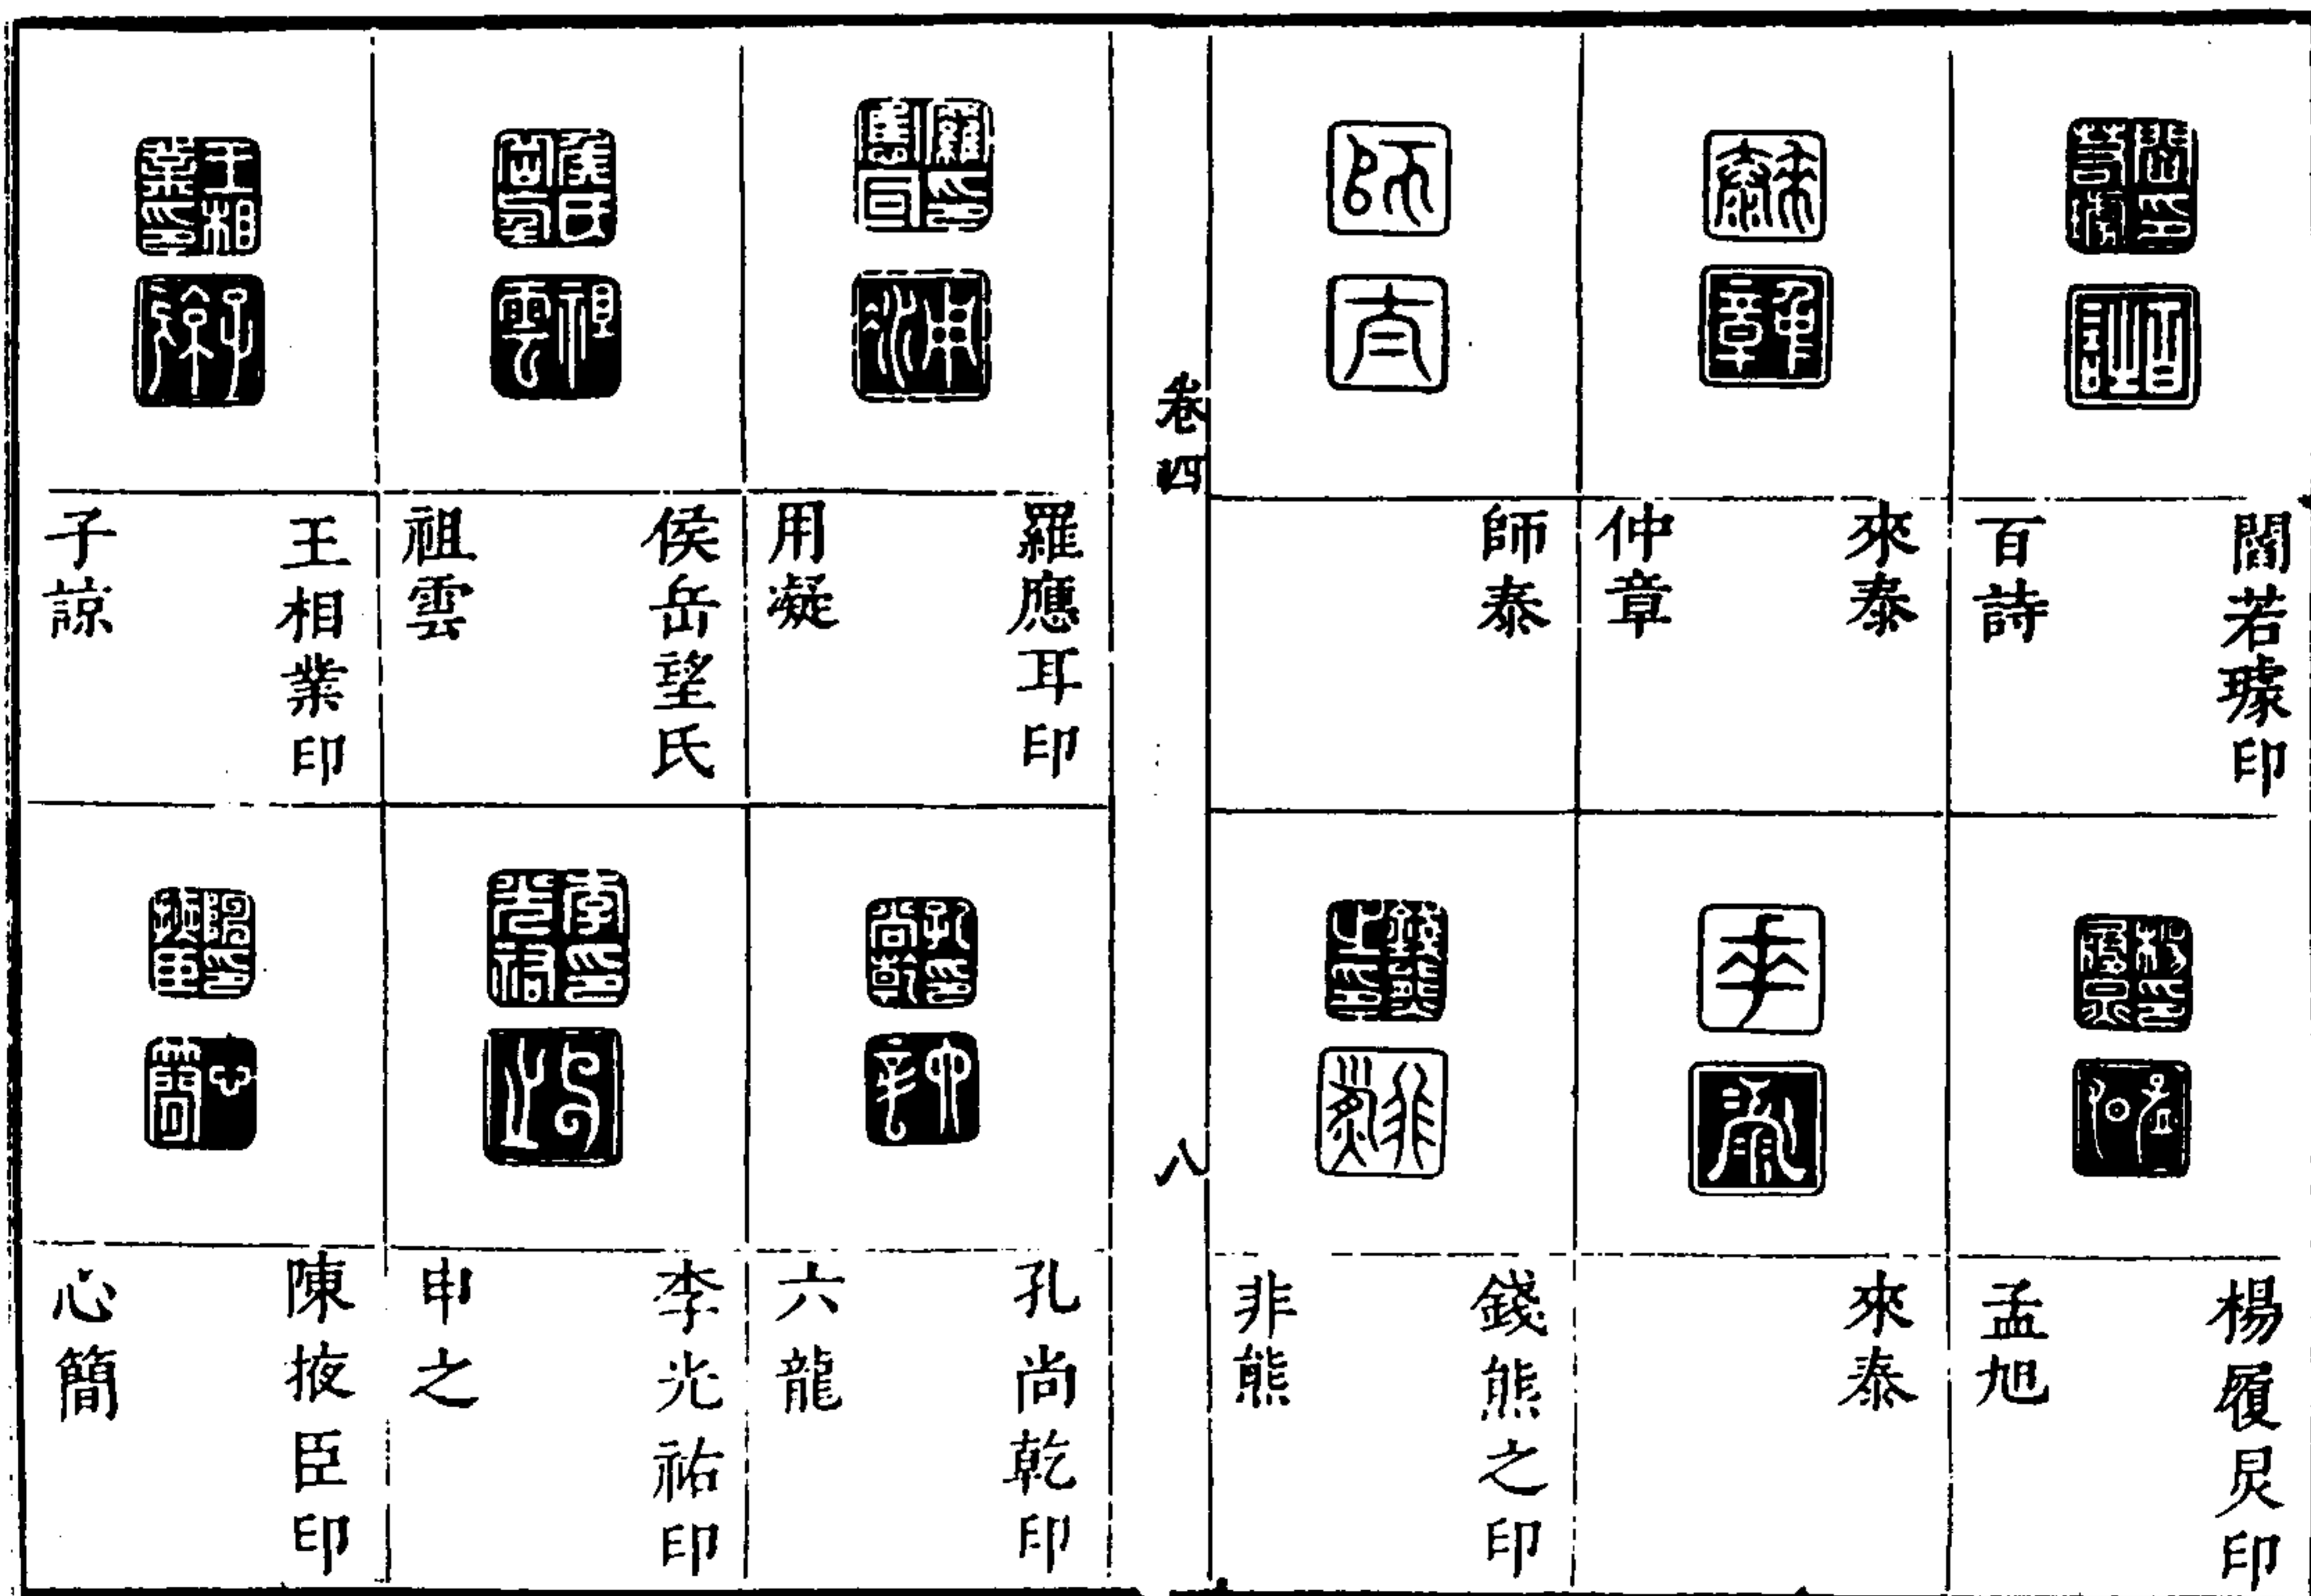 閻若璩印
百詩
來泰
仲章
師泰
楊履炅印
孟旭
來泰
錢熊之印
非熊
卷四
八
羅應耳印
用凝
侯岳望氏
祖雲
王相業印
子諒
孔尚乾印
六龍
李光祐印
申之
陳掖臣印
心簡